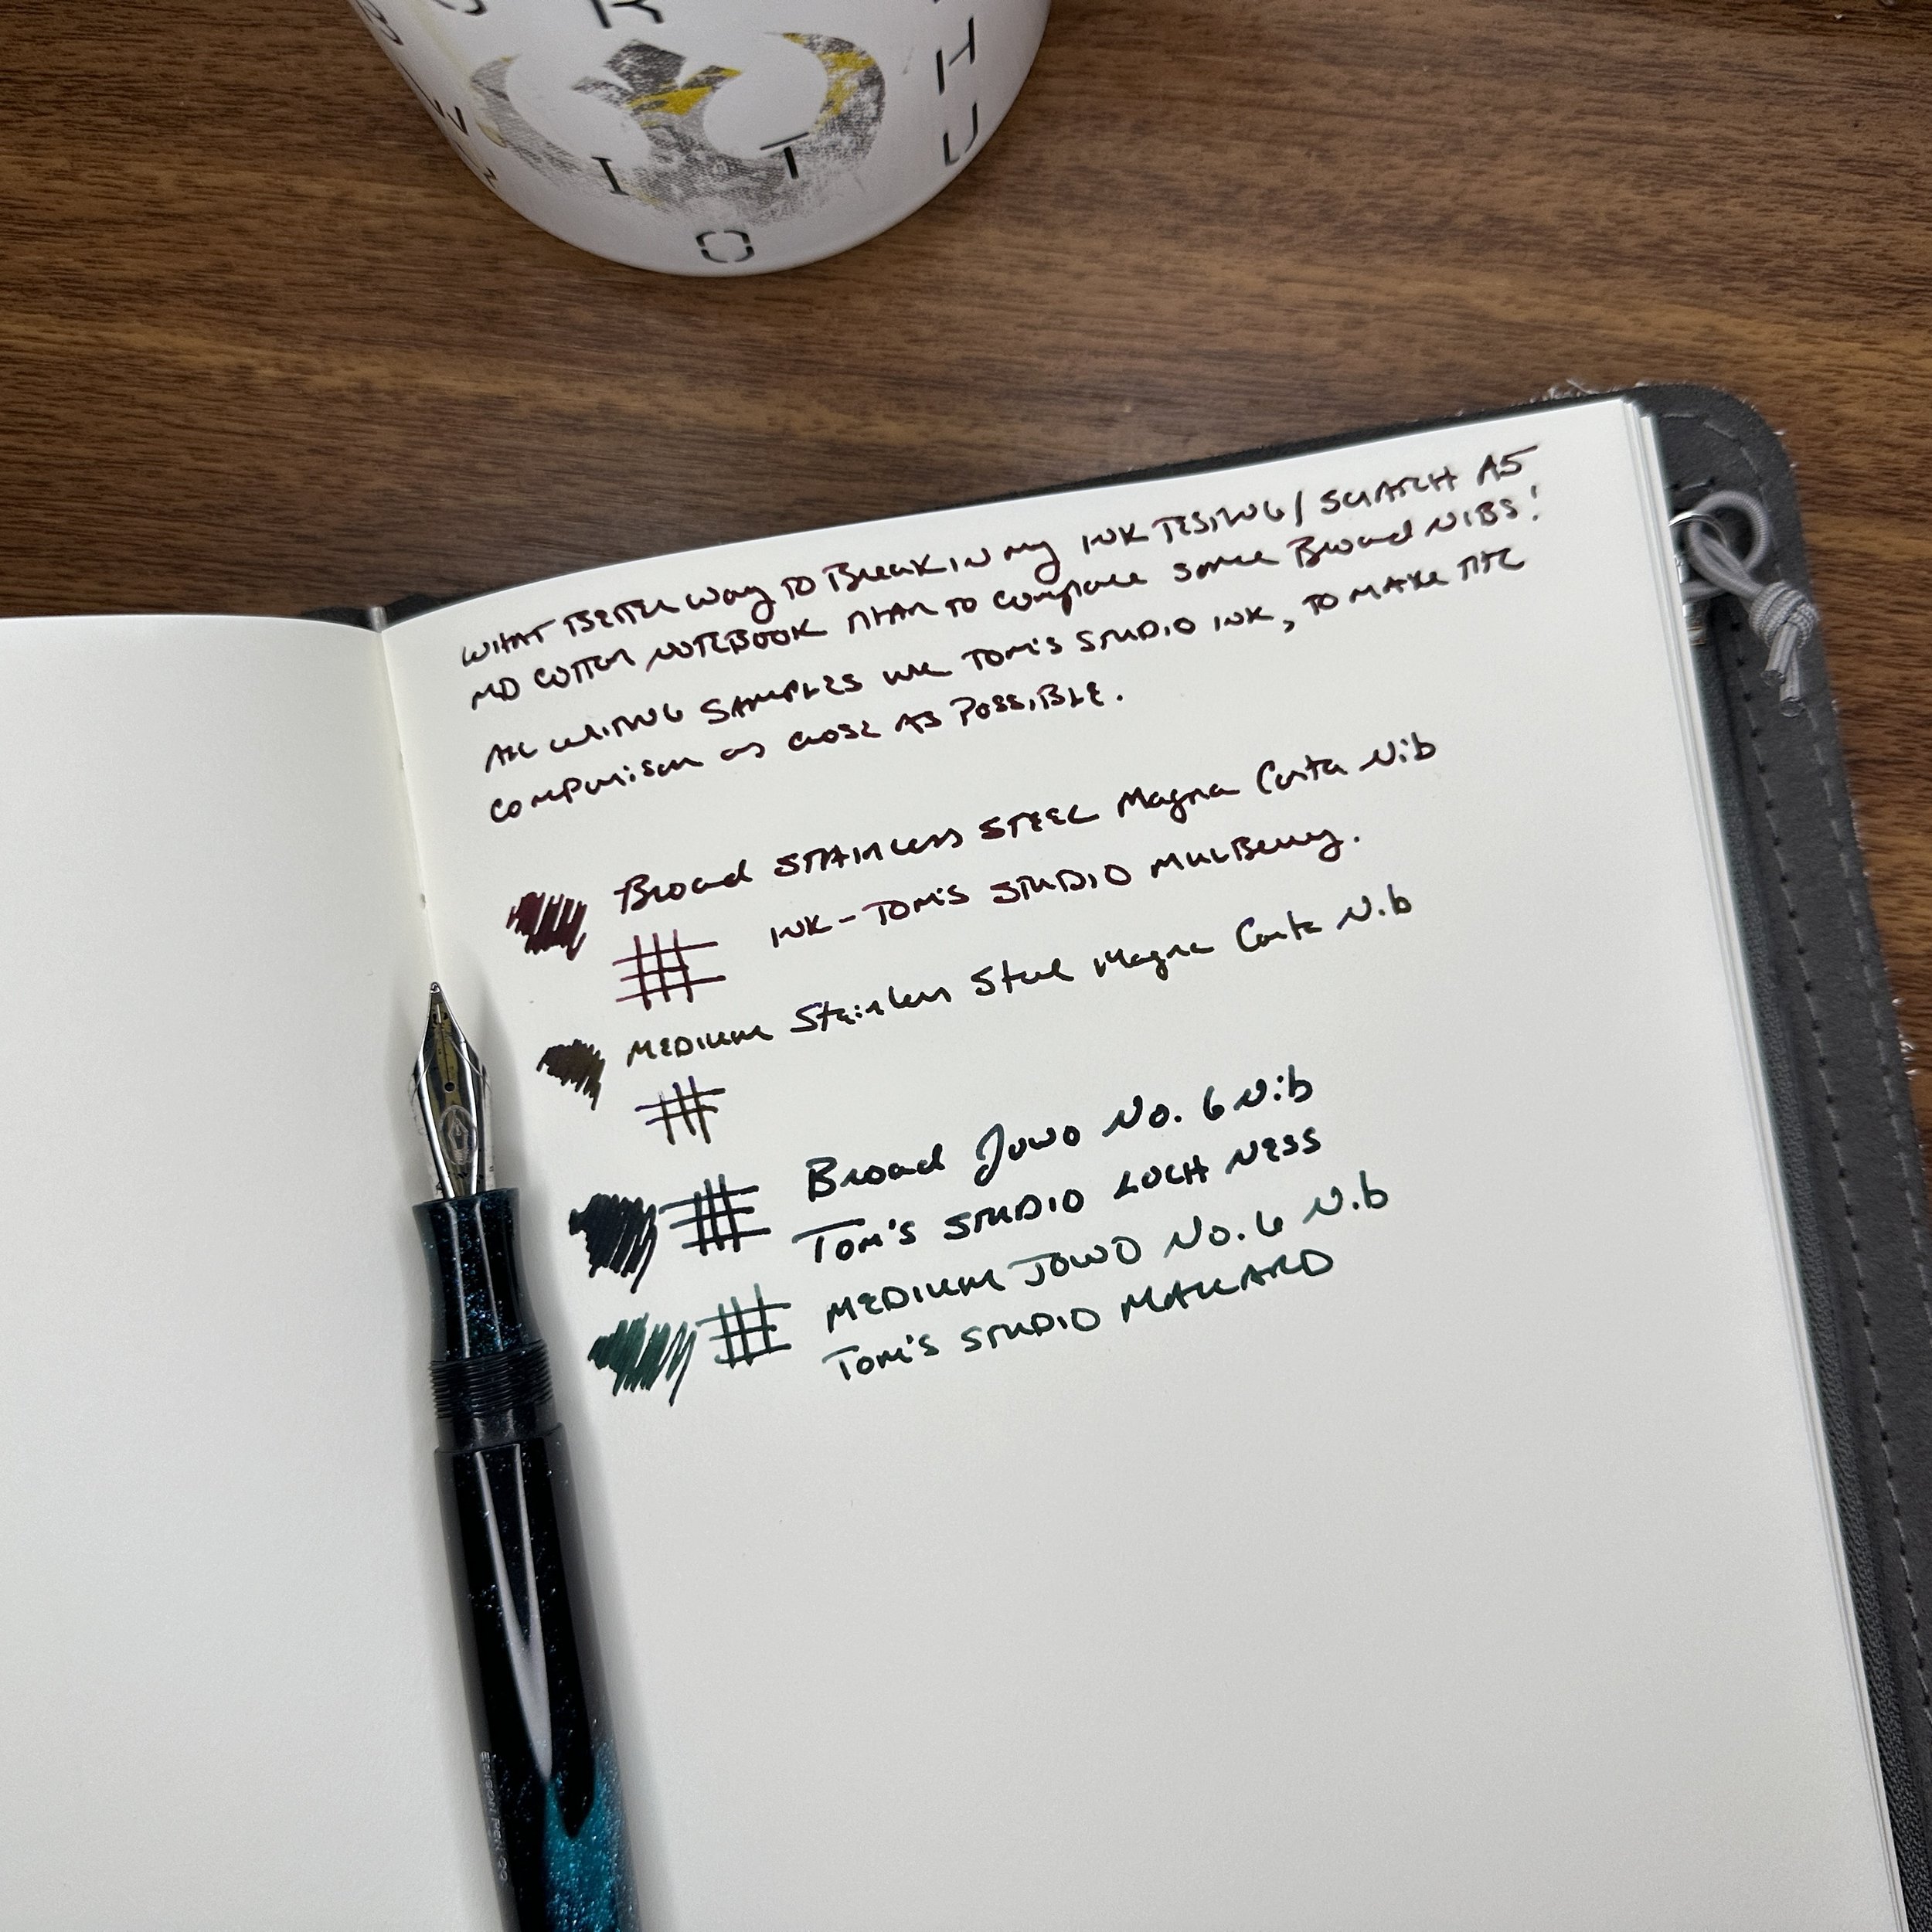 K
H
I T U
O
WHAT BETTER way TO Break IN my INK TESTING/SCRATCH A5
MD COTTON NOTEBOOK THAN TO compare some Broad NIBS!
ALL WRITING SAMPLES use TOM'S STUDIO INK, TO MAKE THE
comparison as close AS POSSIBLE.
Broad STAINLESS STEEL Magna Carta Nib
INK-TOM'S STUDIO MULBerry.
MEDIUM Stainless Steel Magna Carta Nib
Broad Jowo No. 6 Nib
Tom's STUDIO LOCH NESS
MEDIUM JOWO No. 6 Nib
Tom's STUDIO MALLARD
EDISON PEN CO